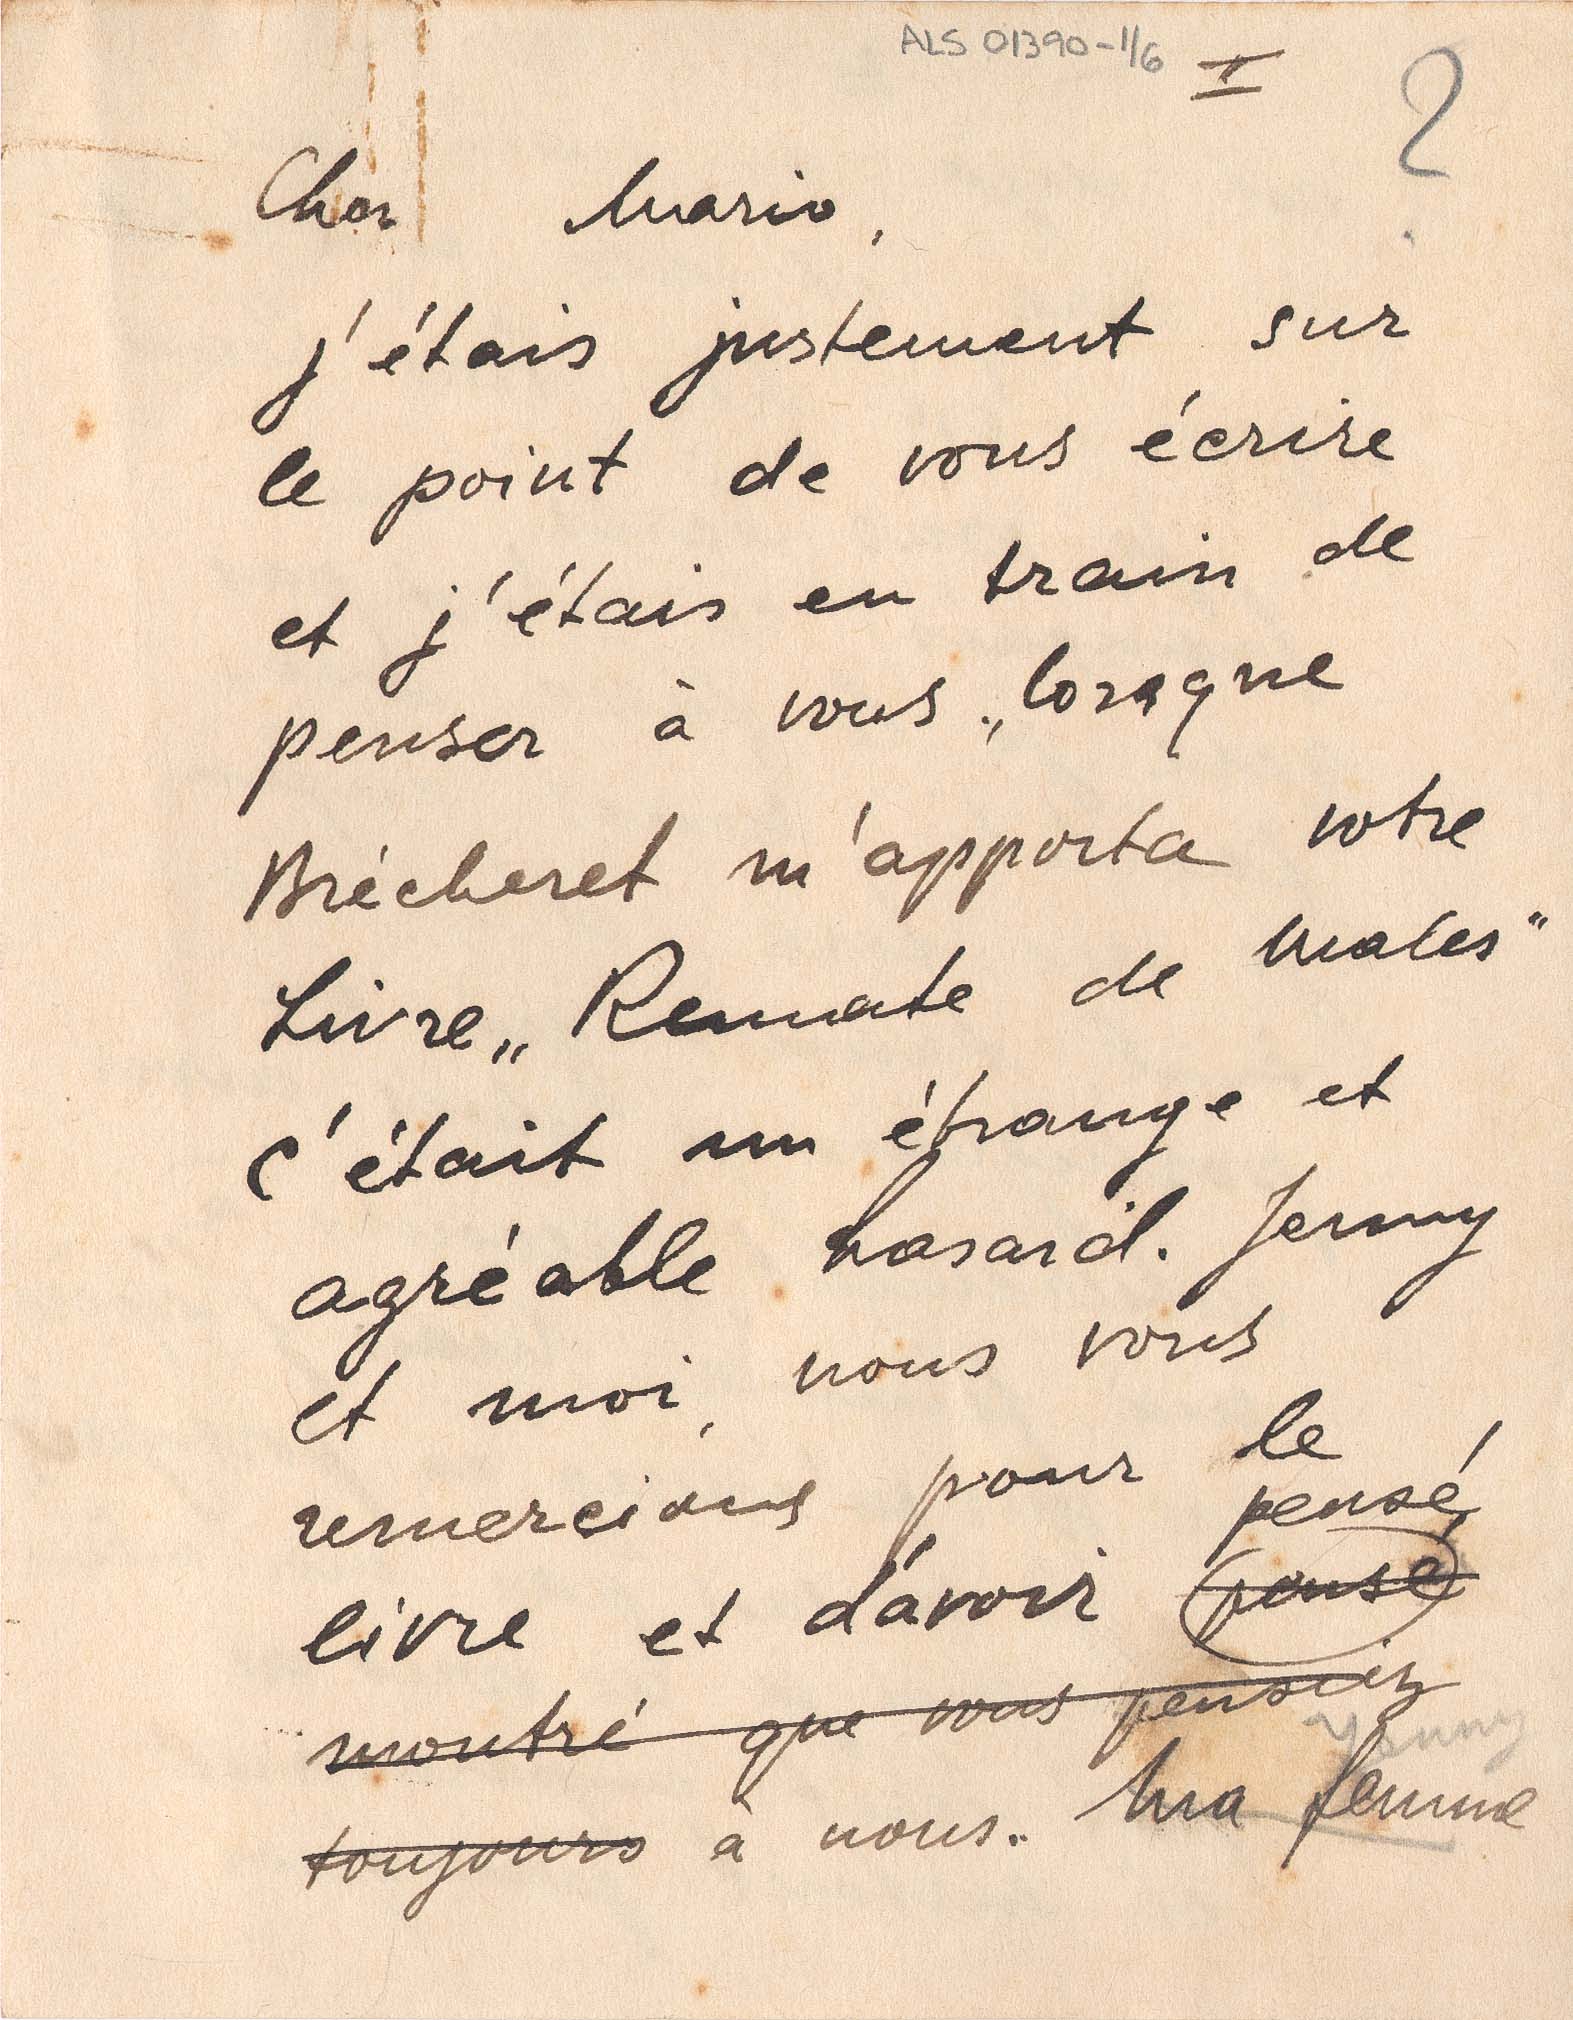 ALS 01390-1/6
I
2
Cher Mario,
j'étais justement sur
le point de vous écrire
et j'étais en train de
penser à vous, lorsque
Brécheret m'apporta votre
Livre „Remate de Males"
C'était un étrange et
agréable hasard. Jenny
et moi, nous vous
remercions pour le
pensé,
livre et d'avoir pensé
montré que vous pensiez
Yenny
toujours à nous. Ma femme